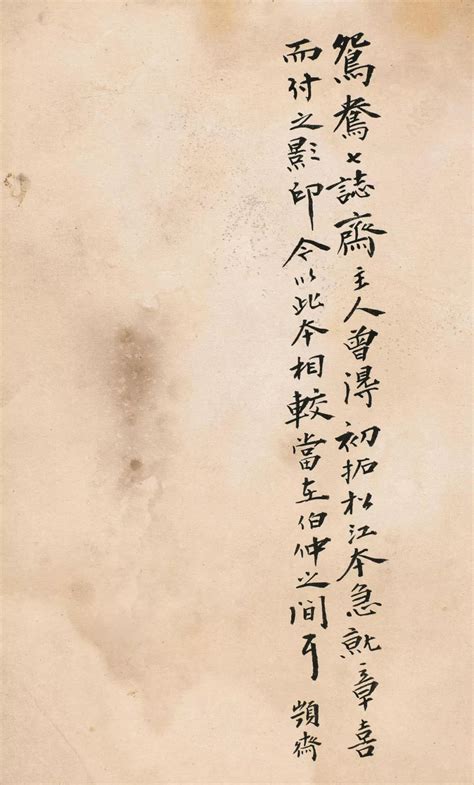 鴛鴦七誌齋主人曾得初拓松江本急就章喜
而付之影印今以此本相較當在伯仲之間耳 顎齋